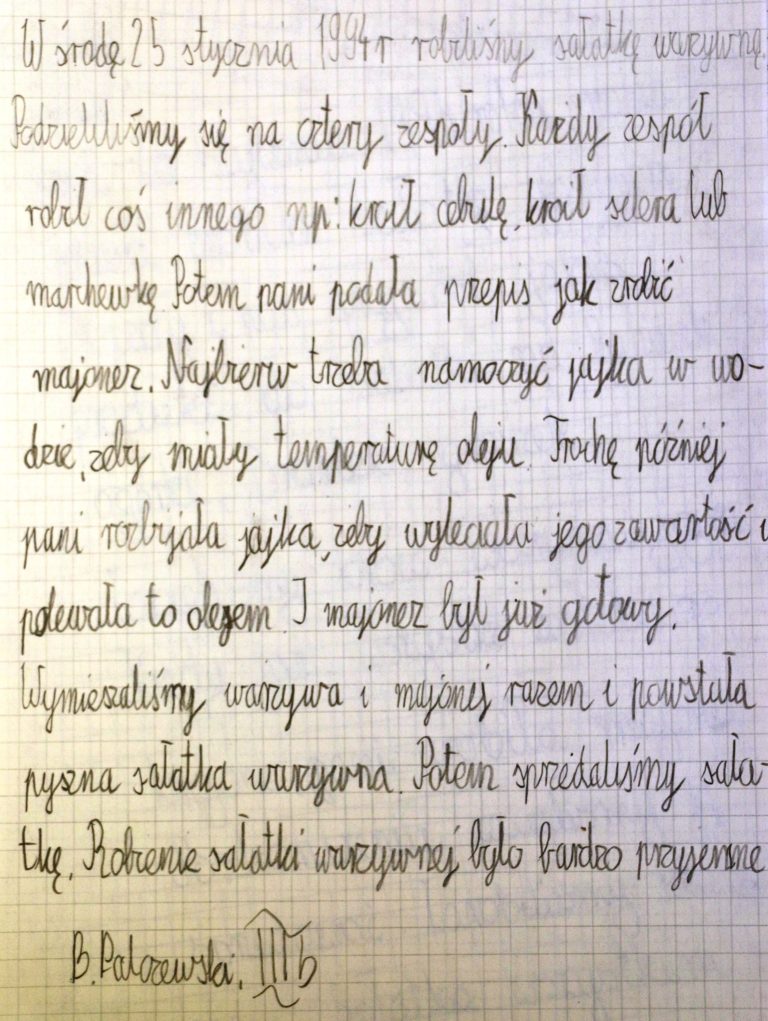 W środę 25 stycznia 1994 r robiliśmy sałatkę warzywną.
Podzieliliśmy się na cztery zespoły. Każdy zespół
robił coś innego np: kroił cebulę, kroił selera lub
marchewkę. Potem pani podała przepis jak zrobić
majonez. Najpierw trzeba namoczyć jajka w wo-
dzie, żeby miały temperaturę oleju. Trochę później
pani rozbijała jajka, żeby wyleciała jego zawartość i
polewała to olejem. I majonez był już gotowy.
Wymieszaliśmy warzywa i majonez razem i powstała
pyszna sałatka warzywna. Potem sprzedaliśmy sała-
tkę. Robienie sałatki warzywnej było bardzo przyjemne
B. Palczewski. III b